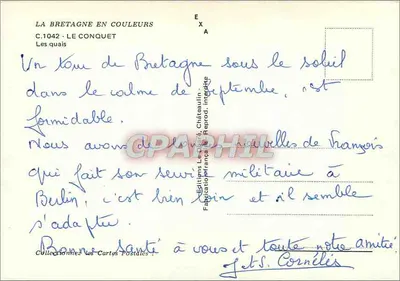 LA BRETAGNE EN COULEURS
C.1042 - LE CONQUET
Les quais
EXA
Un tour de Bretagne sous le soleil
dans le calme de septembre, est
formidable.
Nous avons de bonnes nouvelles de François
qui fait son service militaire à
Berlin, c'est bien loin et il semble
s'adapter.
Bonne santé à vous et toute notre amitié
J et S. Cornélis
Collectionnez les Cartes Postales
Editions Châteaulin -
Fabrication française - Reprod. interdite
CPAPHIL